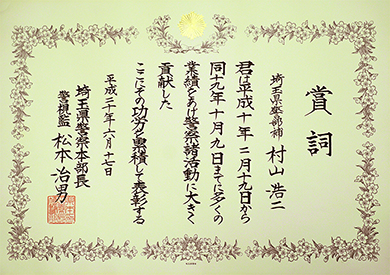 賞詞
埼玉県警部補 村山浩二
君は平成十年二月十九日から
同十九年十月九日までに多くの
業績をあげ警察諸活動に大きく
貢献した
ここにその功労を累積して表彰する
平成二十年六月十七日
埼玉県警察本部長
警視監 松本治男